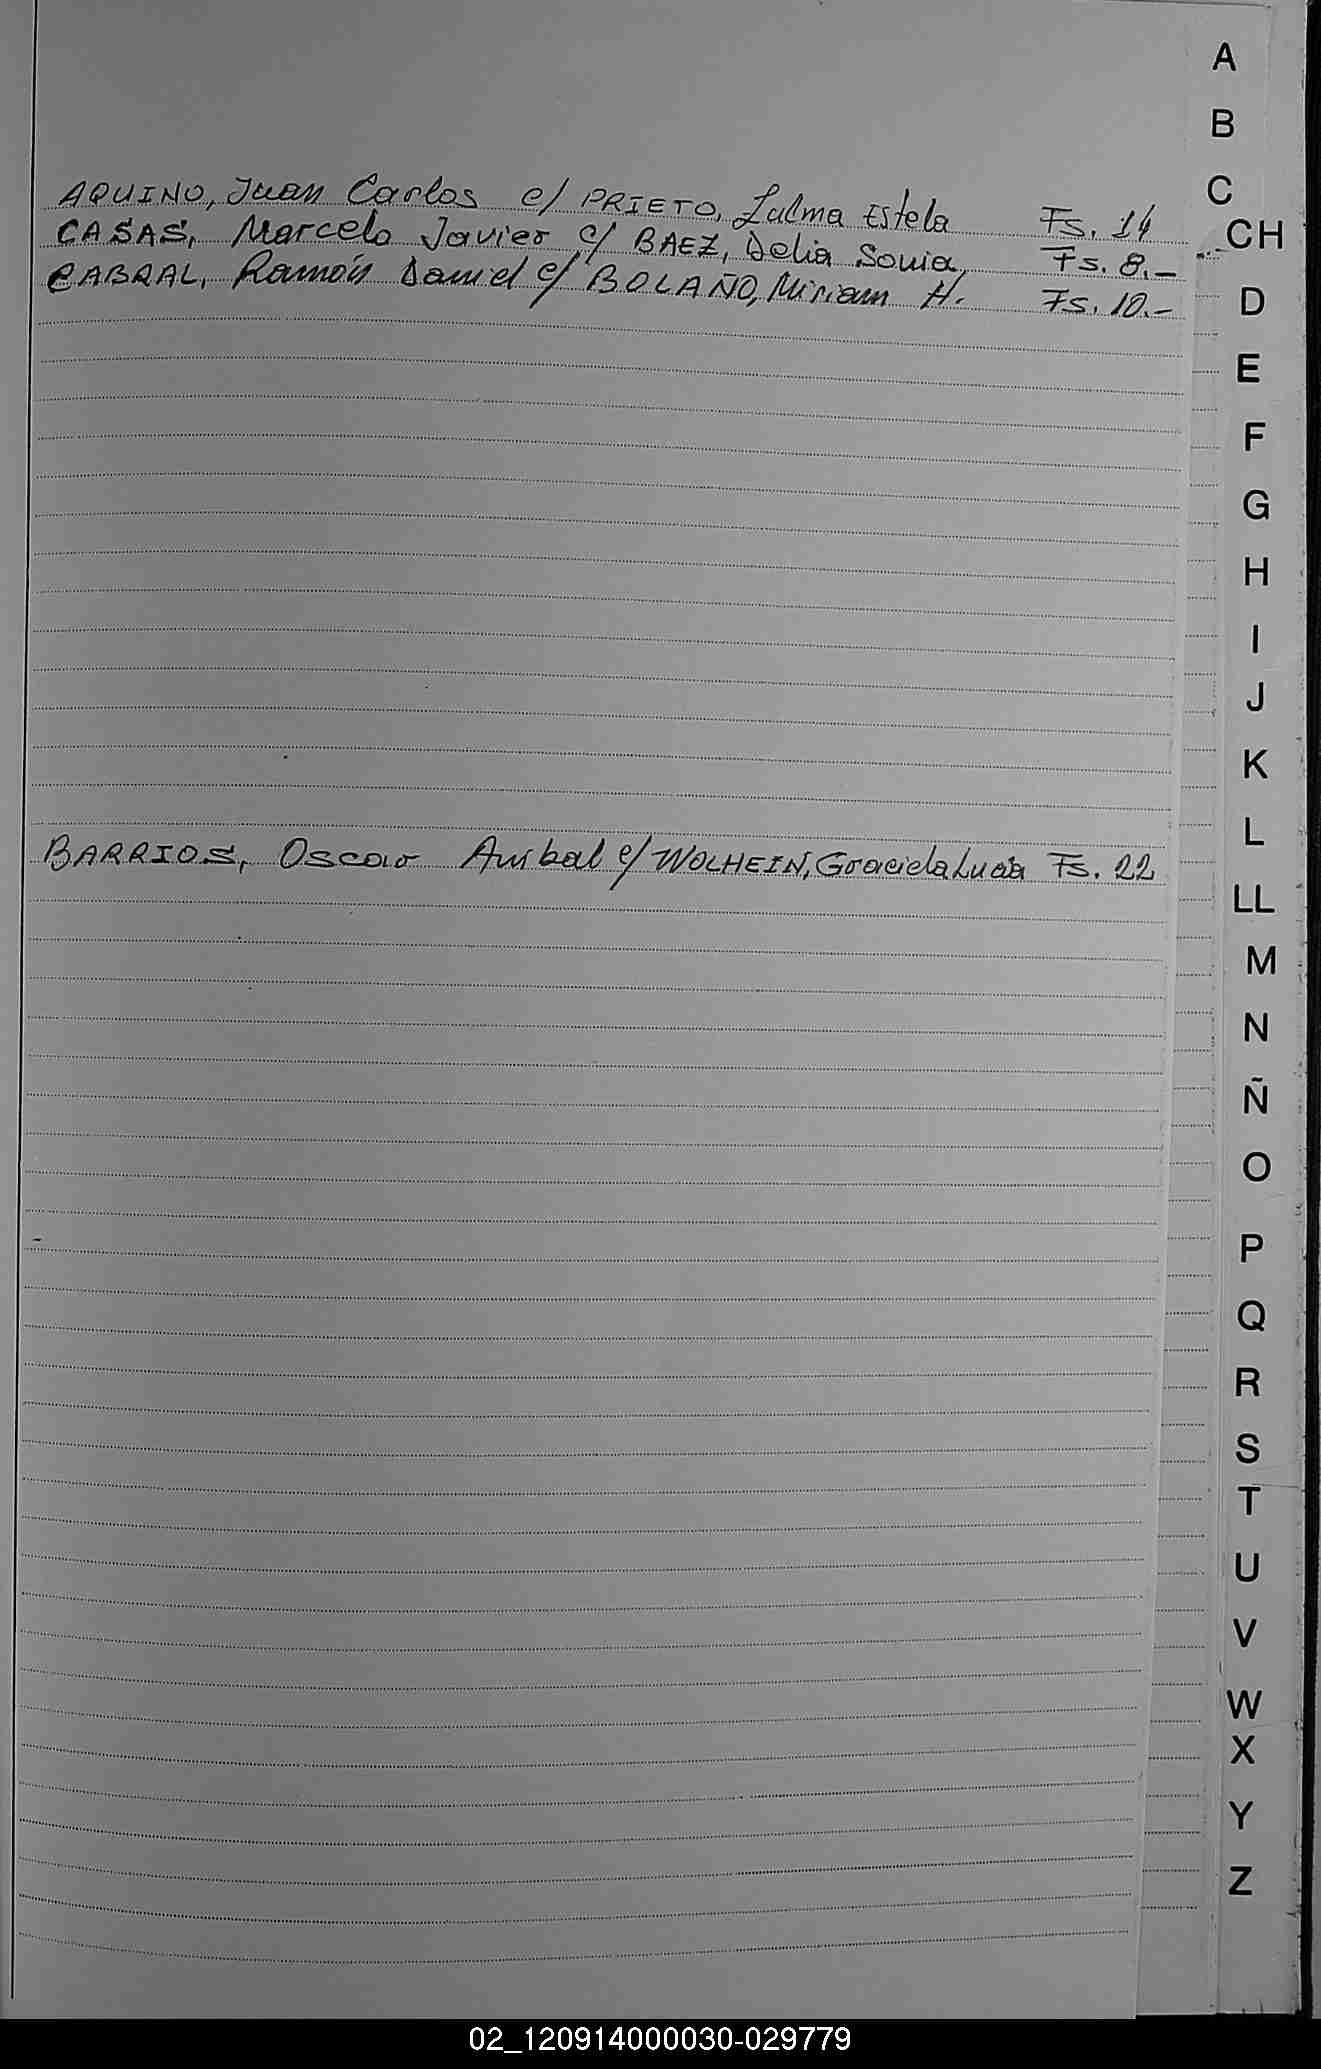 AQUINO, Juan Carlos c/ PRIETO, Zulma Estela Fs. 14
CASAS, Marcelo Javier c/ BAEZ, Delia Sonia, Fs. 8.-
CABRAL, Ramón Daniel c/ BOLAÑO, Miriam H. Fs. 10.-
BARRIOS, Oscar Anibal c/ WOLHEIN, Graciela Lucía Fs. 22
A
B
C
CH
D
E
F
G
H
I
J
K
L
LL
M
N
Ñ
O
P
Q
R
S
T
U
V
W
X
Y
Z
02_120914000030-029779